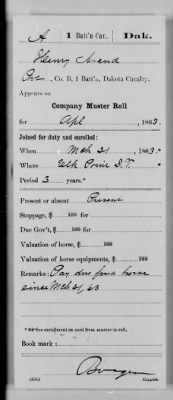 A 1 Batt'n Cav. Dak.
Henry Arend
Pvt., Co. B, 1 Batt'n, Dakota Cavalry.
Appears on
Company Muster Roll
for Apl, 1863.
Joined for duty and enrolled:
When Mch 21, 1863.*
Where Elk Point D.T.*
Period 3 years.*
Present or absent Present
Stoppage, $ 100 for
Due Gov't, $ 100 for
Valuation of horse, $ 100
Valuation of horse equipments, $ 100
Remarks: Pay due for a horse
since Mch 21, 63
*See enrollment on card from muster-in roll.
Book mark:
Copyist.